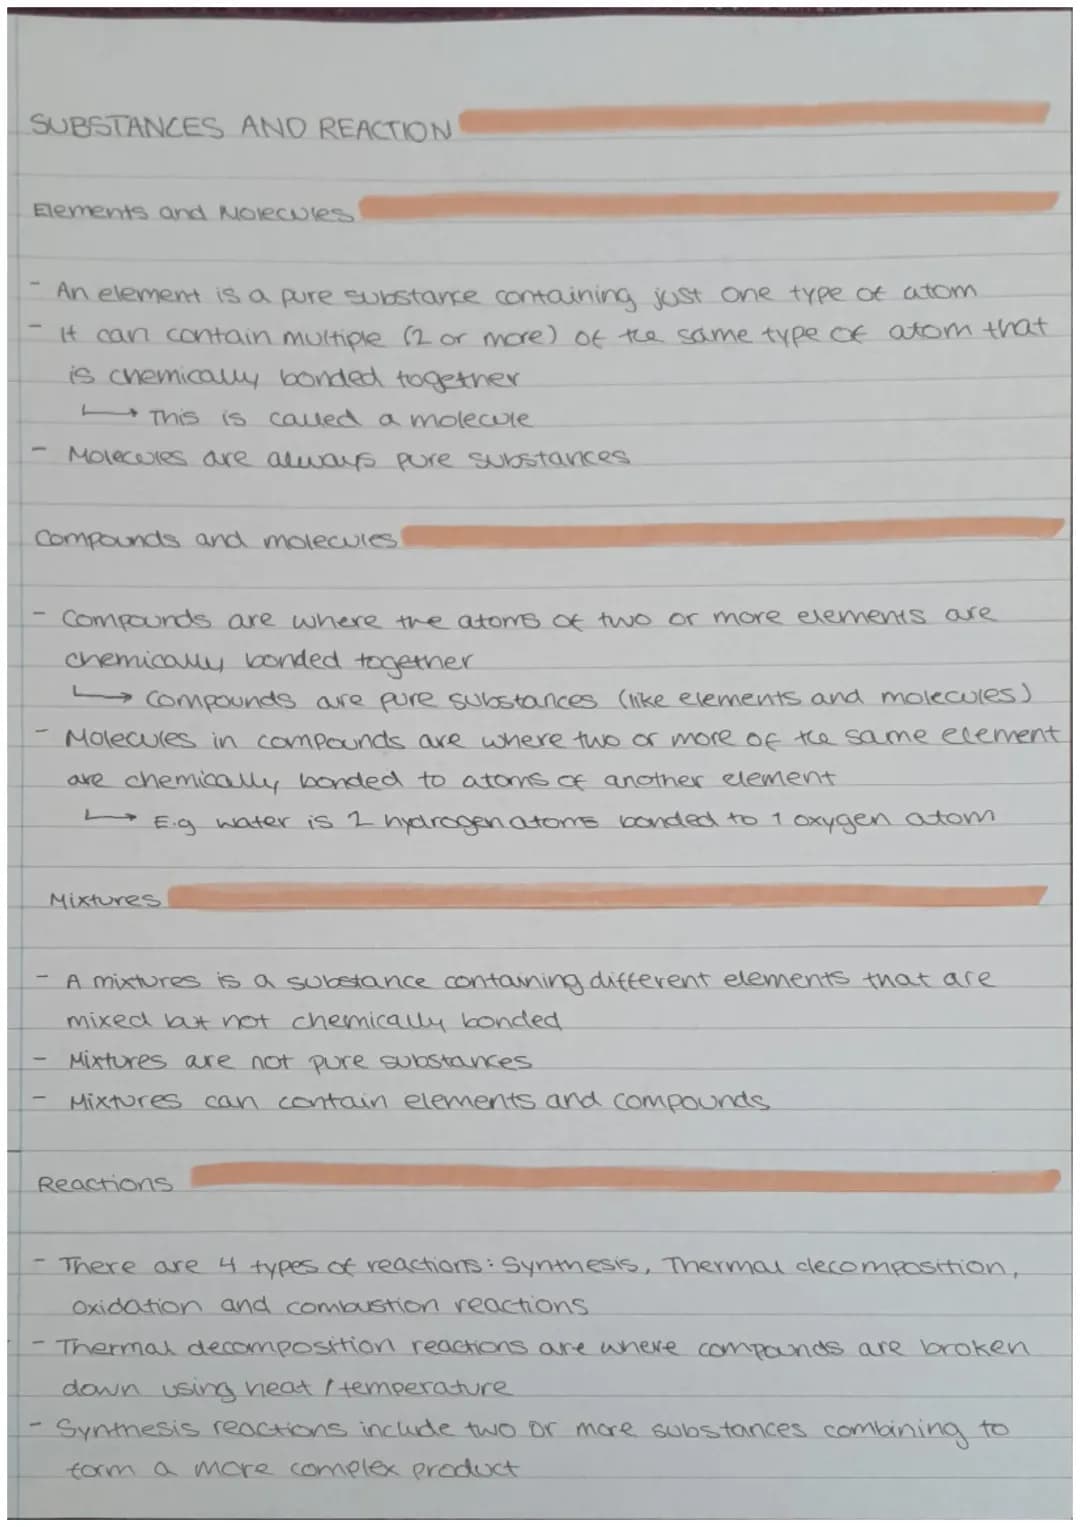 SUBSTANCES AND REACTION
Elements and Molecules
- An element is a pure substance containing just one type of atom
- It can contain multiple (2 or more) of the same type of atom that
is chemically bonded together
↳ This is called a molecule
- Molecules are always pure substances
Compounds and molecules
- Compounds are where the atoms of two or more elements are
chemically bonded together
↳ Compounds are pure substances (like elements and molecules)
- Molecules in compounds are where two or more of the same element
are chemically bonded to atoms of another element
↳ E.g water is 2 hydrogen atoms bonded to 1 oxygen atom
Mixtures
- A mixtures is a substance containing different elements that are
mixed but not chemically bonded
- Mixtures are not pure substances
- Mixtures can contain elements and compounds
Reactions
- There are 4 types of reactions: Synthesis, Thermal decomposition,
oxidation and combustion reactions
- Thermal decomposition reactions are where compounds are broken
down using heat / temperature
- Synthesis reactions include two or more substances combining to
form a more complex product